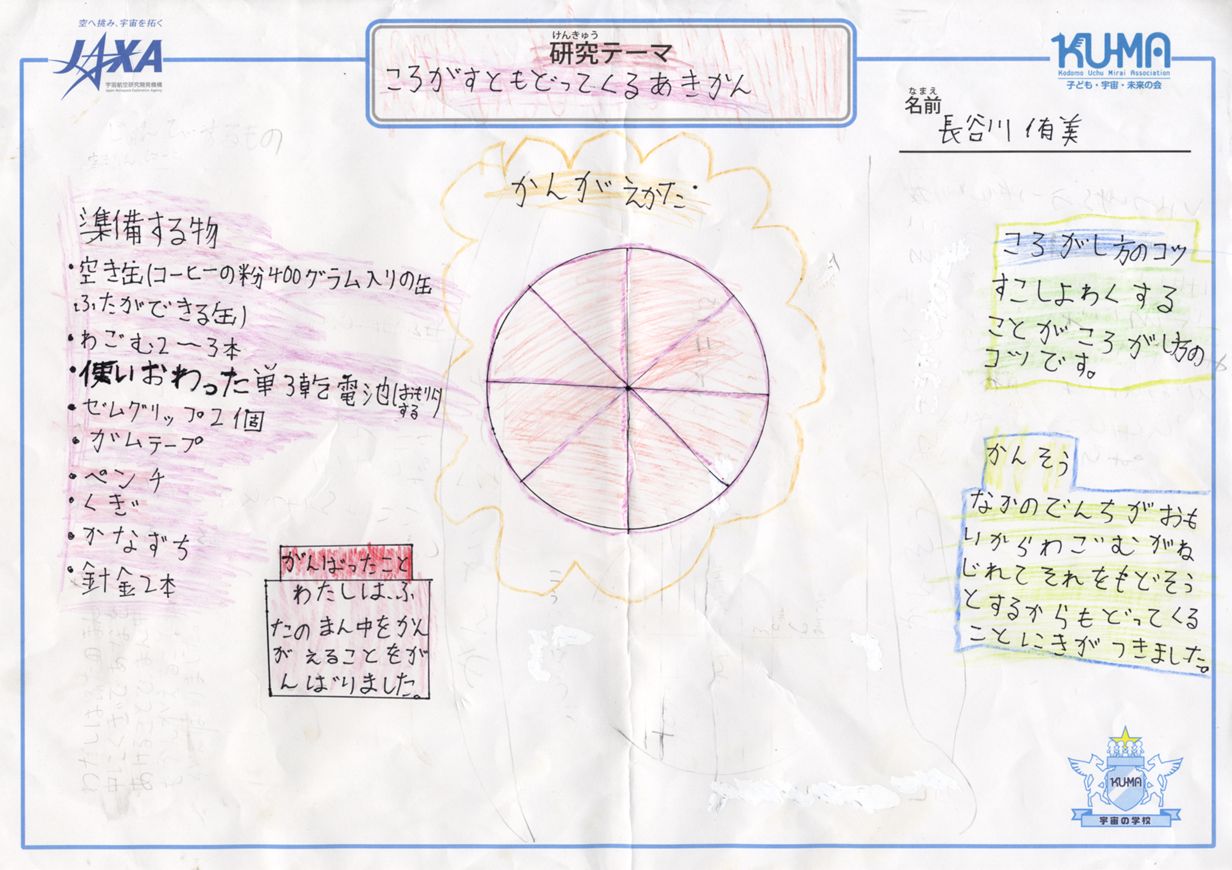 空へ挑み、宇宙を拓く
JAXA
宇宙航空研究開発機構
Japan Aerospace Exploration Agency
けんきゅう
研究テーマ
ころがすともどってくるあきかん
KU-MA
Kodomo Uchu Mirai Association
子ども・宇宙・未来の会
なまえ
名前
長谷川 侑美
準備する物
・空き缶(コーヒーの粉400グラム入りの缶
ふたができる缶)
・わごむ2〜3本
・使いおわった単3乾電池(おもりに
する
・ゼムグリップ2個
・ガムテープ
・ペンチ
・くぎ
・かなずち
・針金2本
がんばったこと
わたしは、ふ
たのまん中をかん
がえることをが
んばりました。
かんがえかた
ころがし方のコツ
すこしよわくする
ことがころがし方の
コツです。
かんそう
なかのでんちがおも
いからわごむがね
じれてそれをもどそう
とするからもどってくる
ことにきがつきました。
KU-MA
宇宙の学校